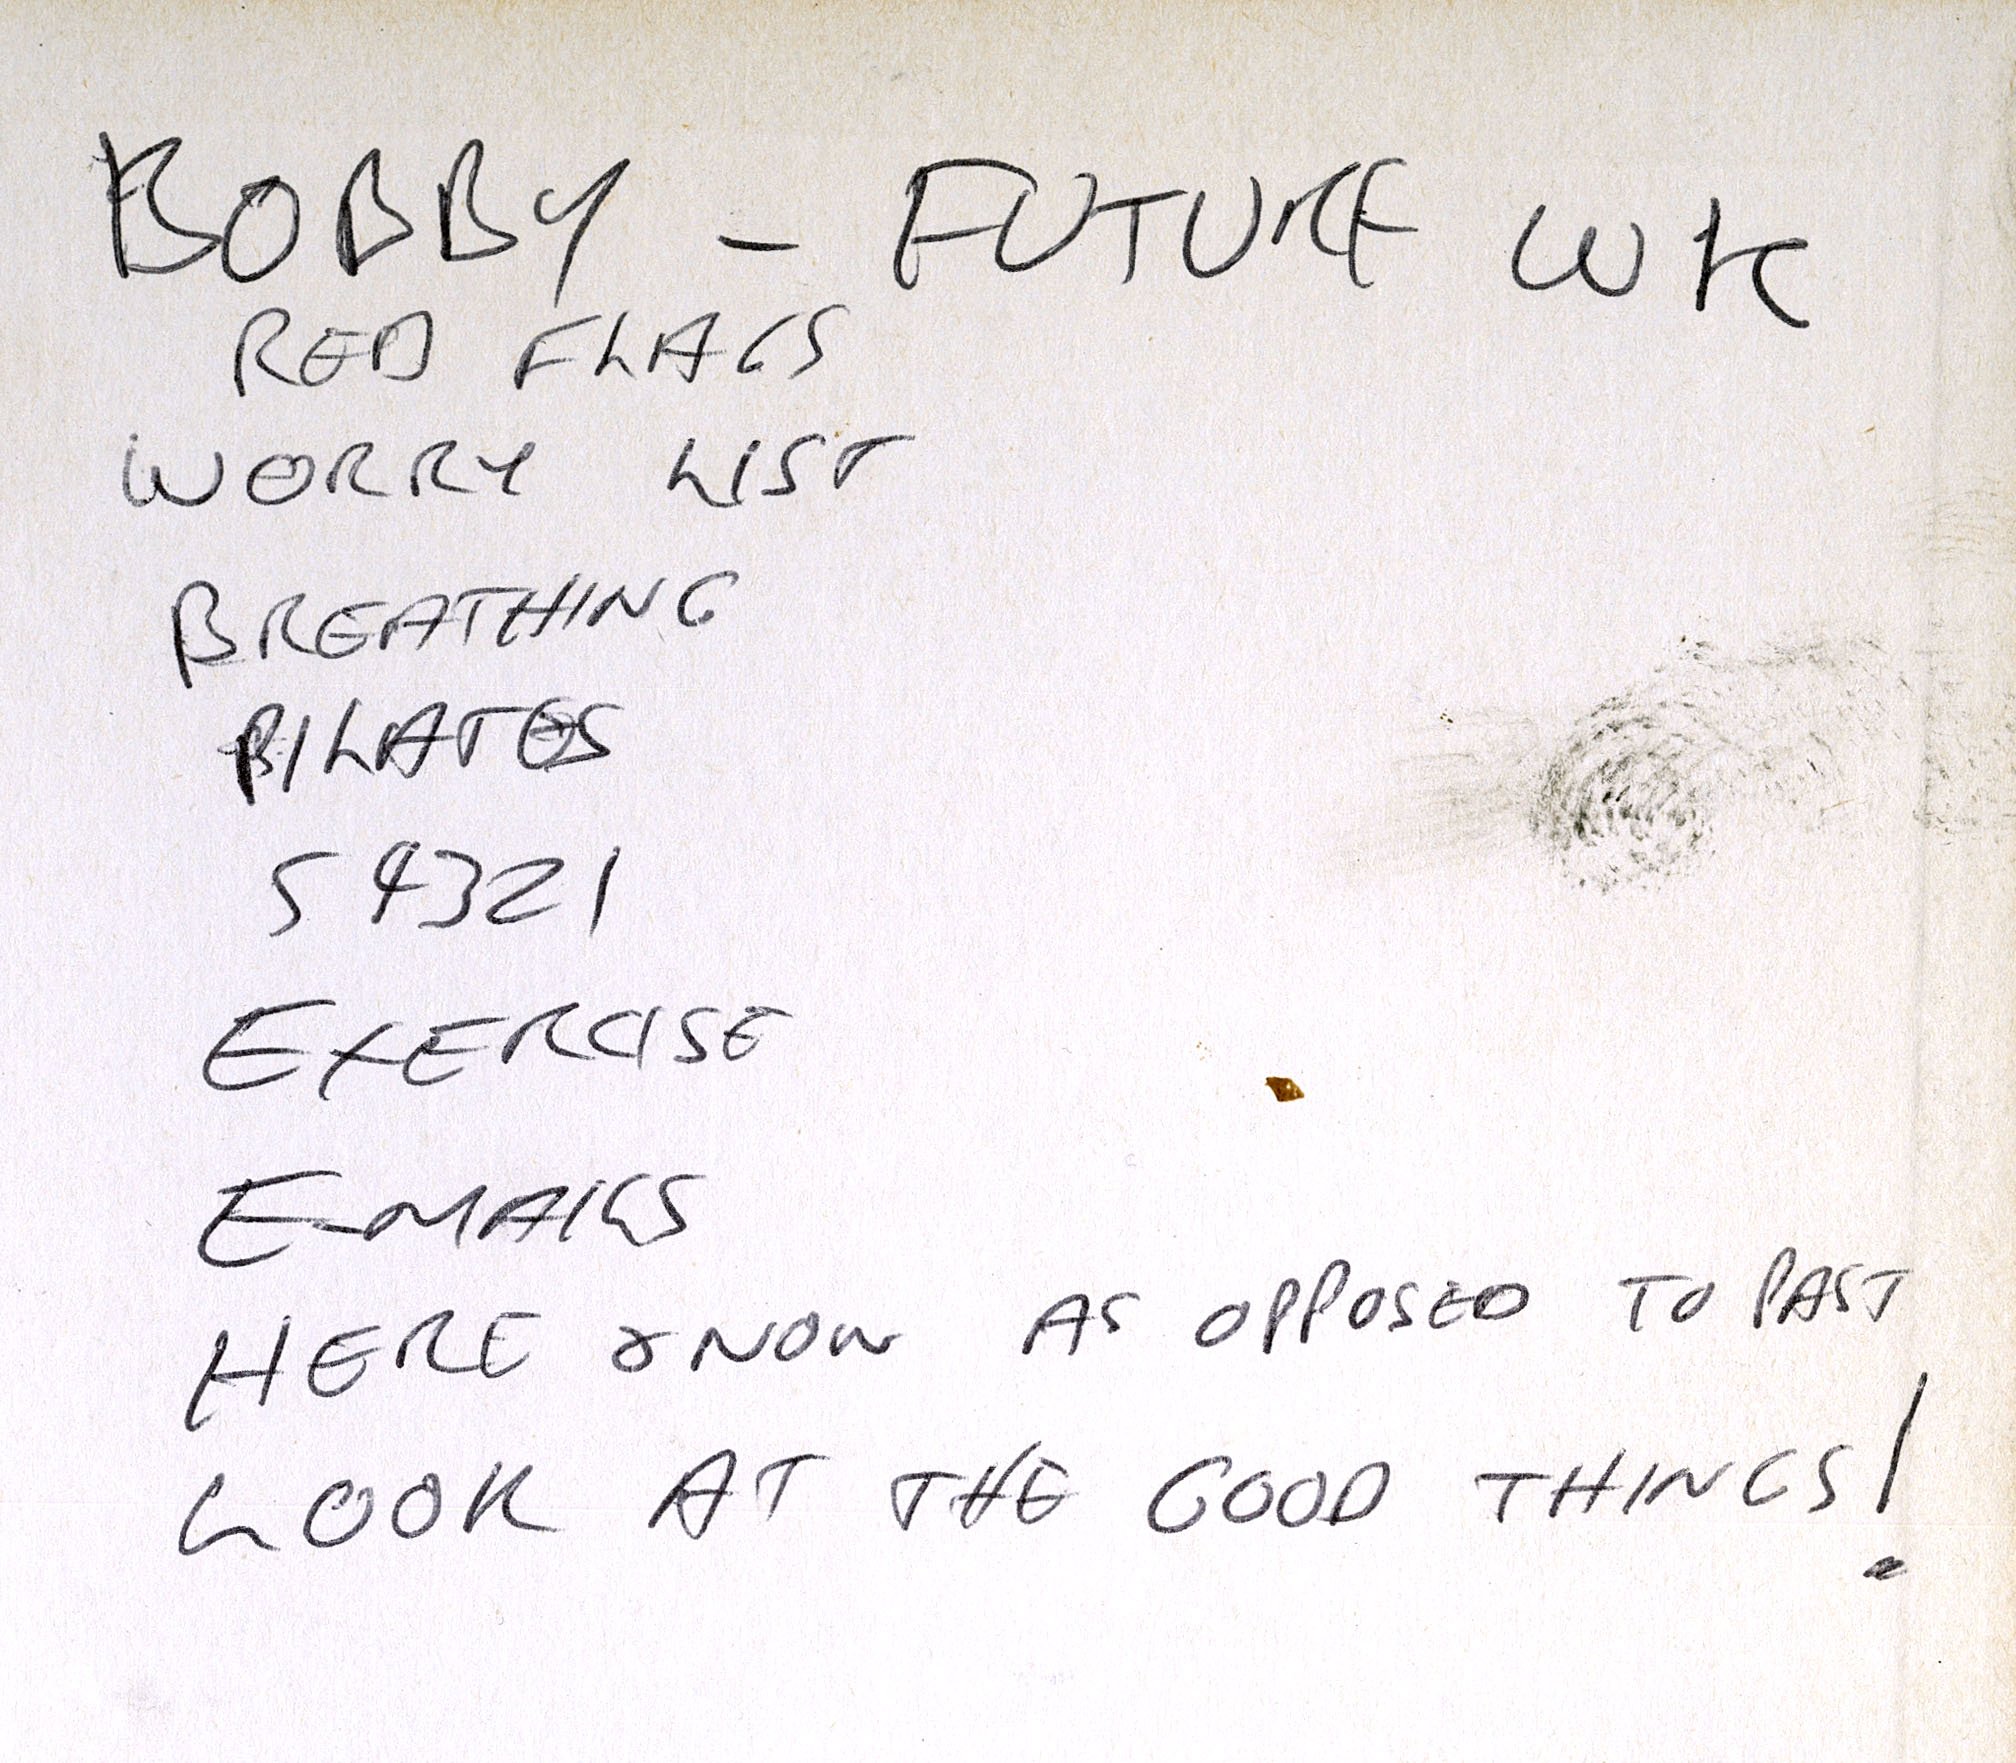 BOBBY - FUTURE WK
RED FLAGS
WORRY LIST
BREATHING
PILATES
54321
EXERCISE
E-MAILS
HERE & NOW AS OPPOSED TO PAST
LOOK AT THE GOOD THINGS!